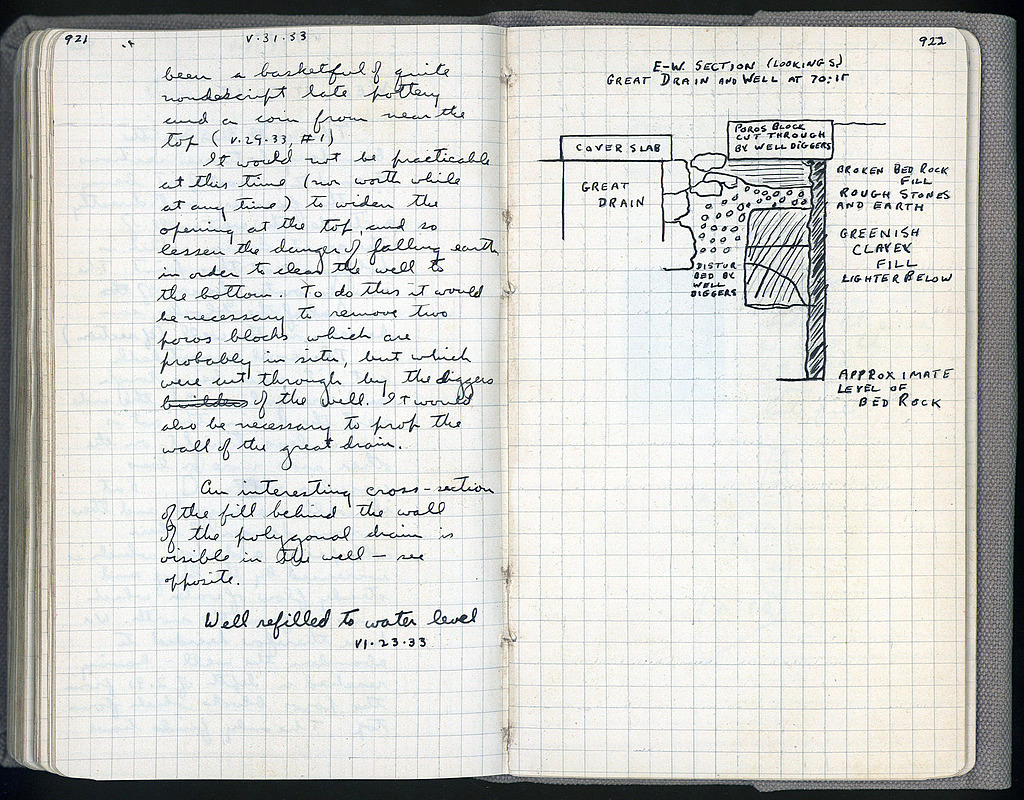 921
V·31·33
been a basketful of quite
nondescript late pottery
and a coin from near the
top (V·29·33, #1)
It would not be practicable
at this time (nor worth while
at any time) to widen the
opening at the top, and so
lessen the danger of falling earth
in order to clear the well to
the bottom. To do this it would
be necessary to remove two
poros blocks which are
probably in situ, but which
were cut through by the diggers
builders of the well. It would
also be necessary to prop the
wall of the great drain.
An interesting cross-section
of the fill behind the wall
of the polygonal drain is
visible in the well — see
opposite.
Well refilled to water level
VI·23·33
922
E-W. SECTION (LOOKING S)
GREAT DRAIN AND WELL AT 70:15
COVER SLAB
POROS BLOCK
CUT THROUGH
BY WELL DIGGERS
GREAT
DRAIN
BROKEN BED ROCK
FILL
ROUGH STONES
AND EARTH
GREENISH
CLAYEY
FILL
LIGHTER BELOW
DISTUR
BED BY
WELL
DIGGERS
APPROXIMATE
LEVEL OF
BED ROCK